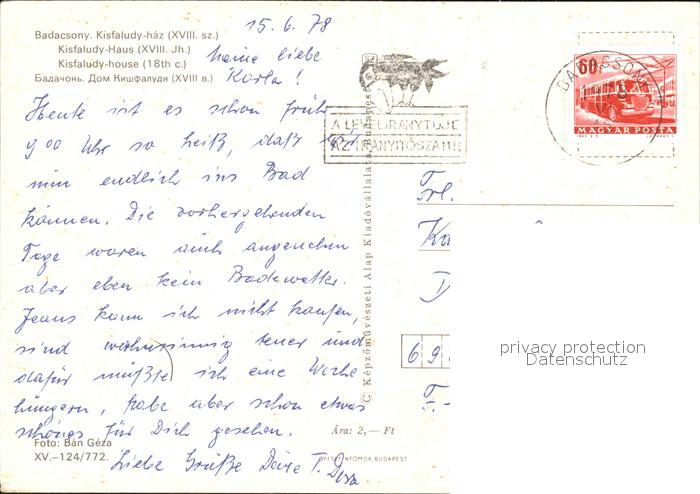 Badacsony. Kisfaludy-ház (XVIII. sz.)
Kisfaludy-Haus (XVIII. Jh.)
Kisfaludy-house (18th c.)
Бадачонь. Дом Кишфалуди (XVIII в.)
15. 6. 78
Meine liebe
Karla!
Heute ist es schon früh
9 00 Uhr so heiß, daß wir
nun endlich ins Bad
können. Die vorhergehenden
Tage waren auch angenehm
aber eben kein Badewetter.
Jeans kann ich nicht kaufen,
sind wahnsinnig teuer und
dafür müßte ich eine Woche
hungern, habe aber schon etwas
schönes für Dich gesehen.
Liebe Grüße Deine T.
Foto: Bán Géza
XV.–124/772.
Ára: 2,— Ft
OFFSETNYOMDA, BUDAPEST
© Képzőművészeti Alap Kiadóvállalata, Budapest
A LEVÉL IRÁNYTŰJE
AZ IRÁNYÍTÓSZÁM!
BADACSONY
60f
MAGYAR POSTA
Frl.
Ka
D
6 9
privacy protection
Datenschutz